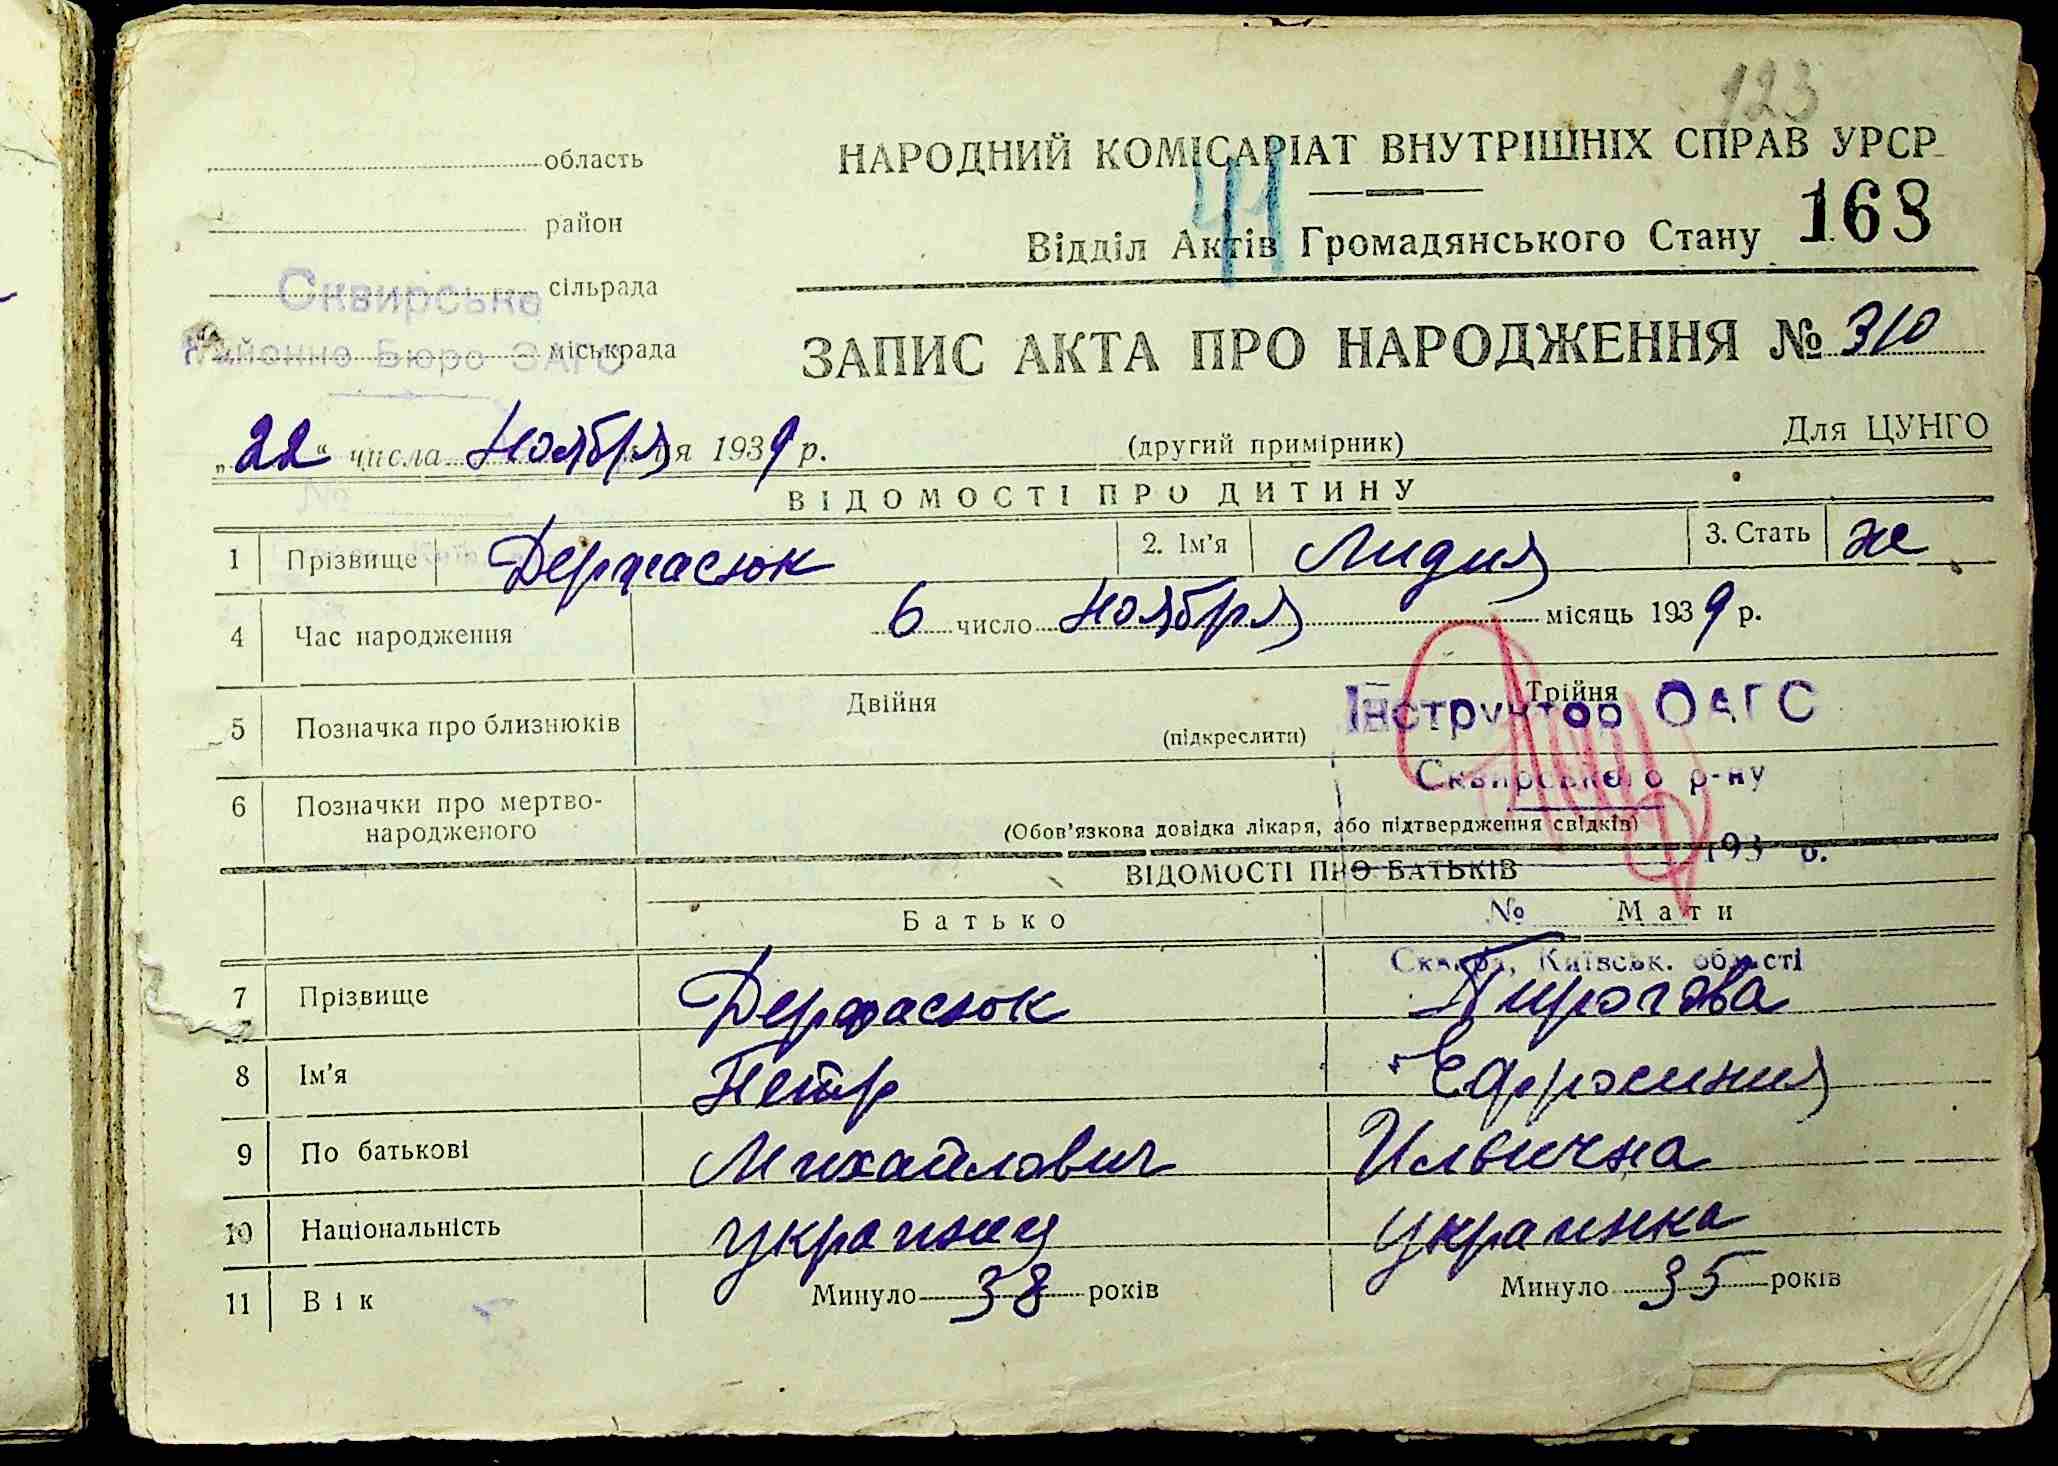 123
область
НАРОДНИЙ КОМІСАРІАТ ВНУТРІШНІХ СПРАВ УРСР
41
район
Відділ Актів Громадянського Стану 168
сільрада
Сквирське
міськрада
Районне Бюро ЗАГС
ЗАПИС АКТА ПРО НАРОДЖЕННЯ № 310
"22" числа Ноября 1939 р.
(другий примірник)
Для ЦУНГО
№
ВІДОМОСТІ ПРО ДИТИНУ
1 Прізвище Держасюк 2. Ім'я Лидия 3. Стать ж
4 Час народження 6 число Ноября місяць 1939 р.
5 Позначка про близнюків Двійня (підкреслити) Трійня
Інструктор ОАГС
Сквирського р-ну
6 Позначки про мертво-
народженого
(Обов'язкова довідка лікаря, або підтвердження свідків)
193 р.
ВІДОМОСТІ ПРО БАТЬКІВ
Батько Мати
№
Сквира, Київськ. області
7 Прізвище Держасюк Пирогова
8 Ім'я Петр Ефросиния
9 По батькові Михайлович Ильична
10 Національність украинец украинка
11 Вік Минуло 38 років Минуло 35 років